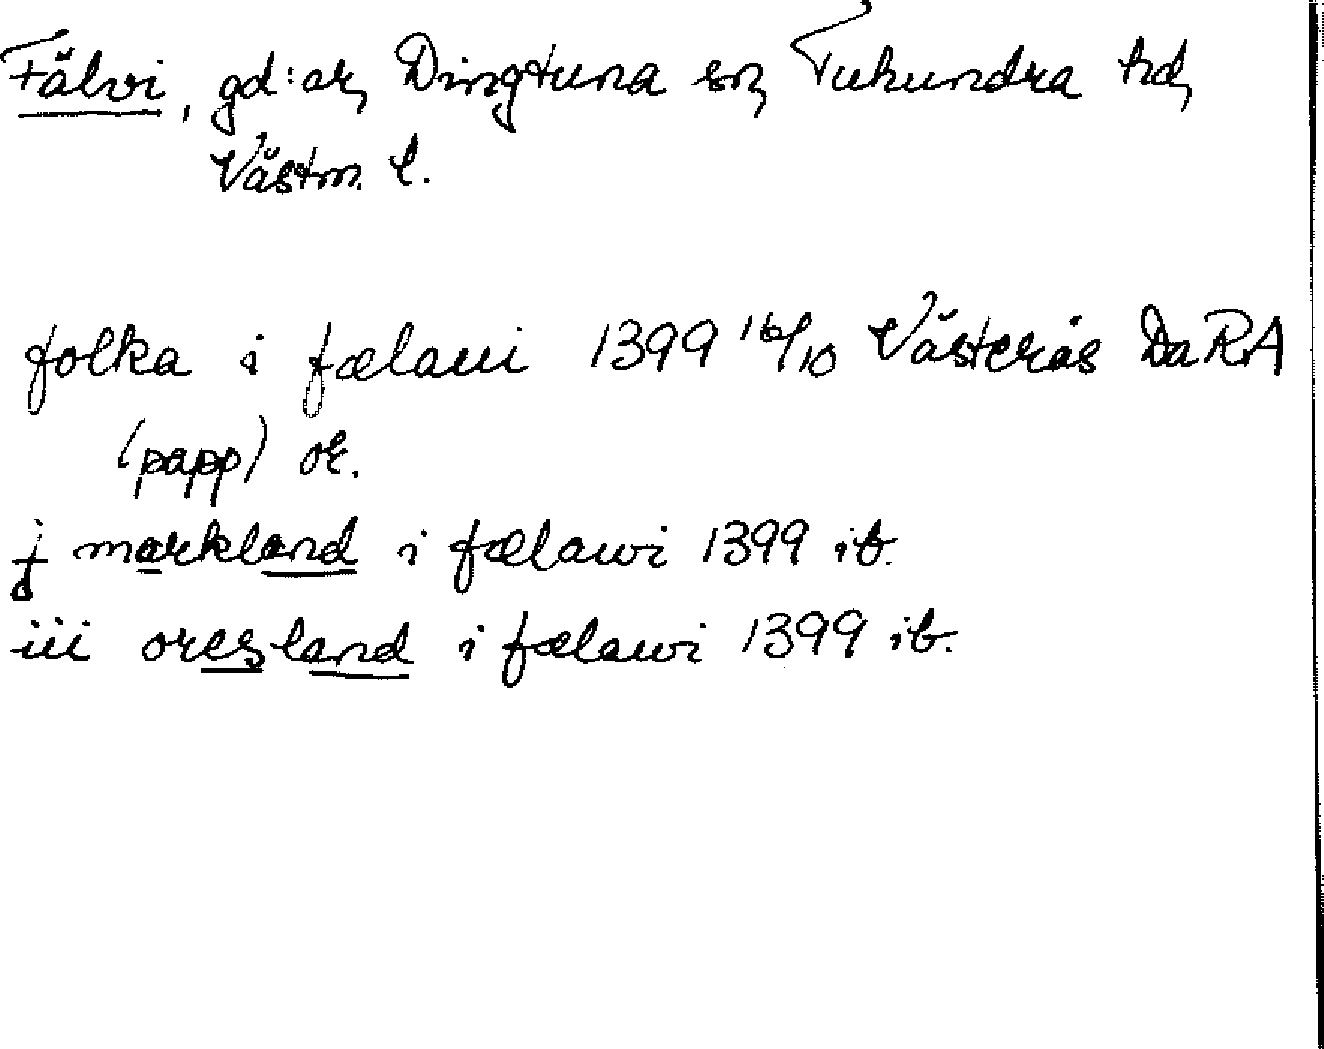 Fälvi, gd:ar, Dingtuna sn, Tuhundra hd,
Västm. l.
folka i fælaui 1399 16/10 Västerås DaRA
(papp) or.
j markland i fælawi 1399 ib.
iii oresland i fælawi 1399 ib.